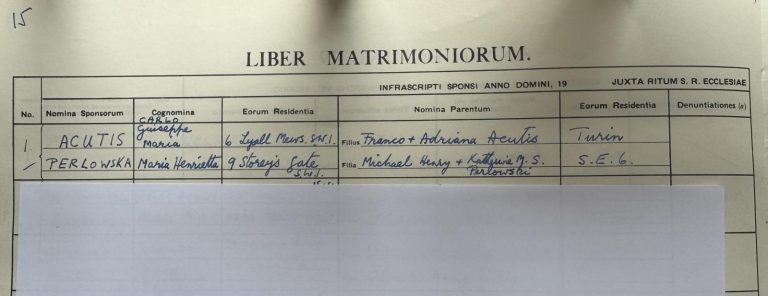 15
LIBER MATRIMONIORUM.
INFRASCRIPTI SPONSI ANNO DOMINI, 19 JUXTA RITUM S. R. ECCLESIAE
No. Nomina Sponsorum Cognomina Eorum Residentia Nomina Parentum Eorum Residentia Denuntiationes (a)
CARLO
Giuseppe
1. ACUTIS Maria 6 Lyall Mews. S.W.1. Filius Franco + Adriana Acutis Turin
PERLOWSKA Maria Henrietta 9 Storey's Gate Filia Michael Henry + M. S. S.E.6.
S.W.1. Perlowski